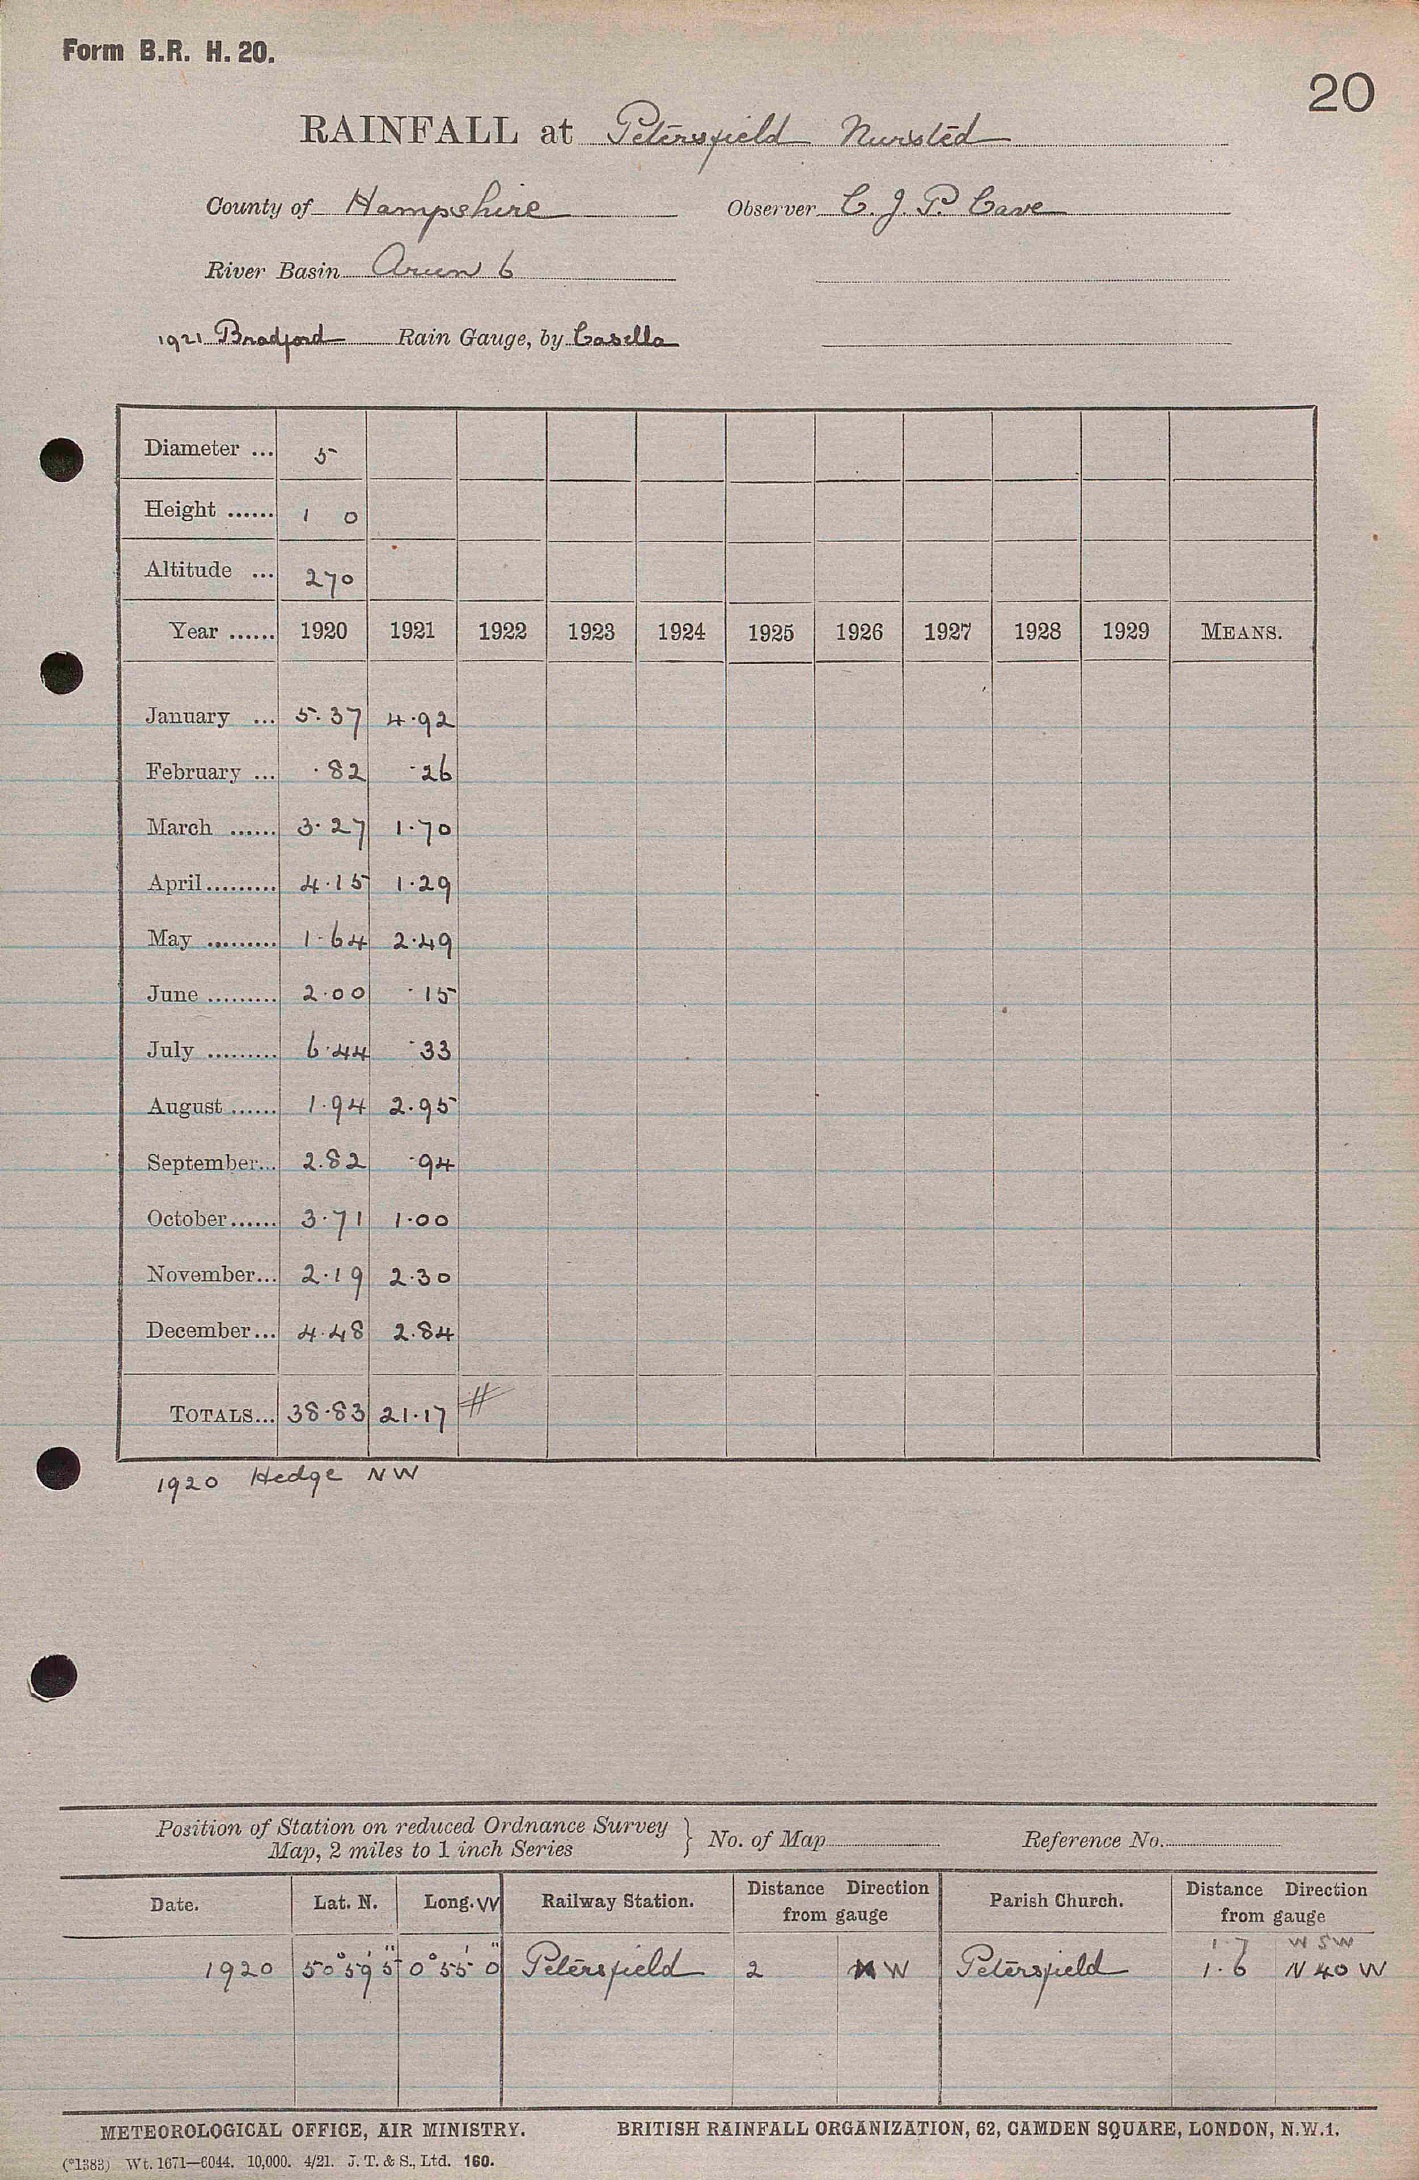 Form B.R. H. 20.
20
RAINFALL at Petersfield Nursted
County of Hampshire Observer C. J. P. Cave
River Basin Arun 6
1921 Bradford Rain Gauge, by Casella
Diameter ... 5
Height ...... 1 0
Altitude ... 270
Year ...... 1920 1921 1922 1923 1924 1925 1926 1927 1928 1929 MEANS.
January ... 5.37 4.92
February ... .82 .26
March ...... 3.27 1.70
April......... 4.15 1.29
May ......... 1.64 2.49
June ......... 2.00 .15
July ......... 6.44 .33
August ...... 1.94 2.95
September... 2.82 .94
October...... 3.71 1.00
November... 2.19 2.30
December... 4.48 2.84
TOTALS... 38.83 21.17 #
1920 Hedge NW
Position of Station on reduced Ordnance Survey
Map, 2 miles to 1 inch Series } No. of Map Reference No.
Date. Lat. N. Long. W Railway Station. Distance Direction from gauge Parish Church. Distance Direction from gauge
1.7 WSW
1920 50° 59' 5" 0° 55' 0" Petersfield 2 W Petersfield 1.6 N 40 W
METEOROLOGICAL OFFICE, AIR MINISTRY. BRITISH RAINFALL ORGANIZATION, 62, CAMDEN SQUARE, LONDON, N.W.1.
(*1383) Wt. 1671—6044. 10,000. 4/21. J. T. & S., Ltd. 160.